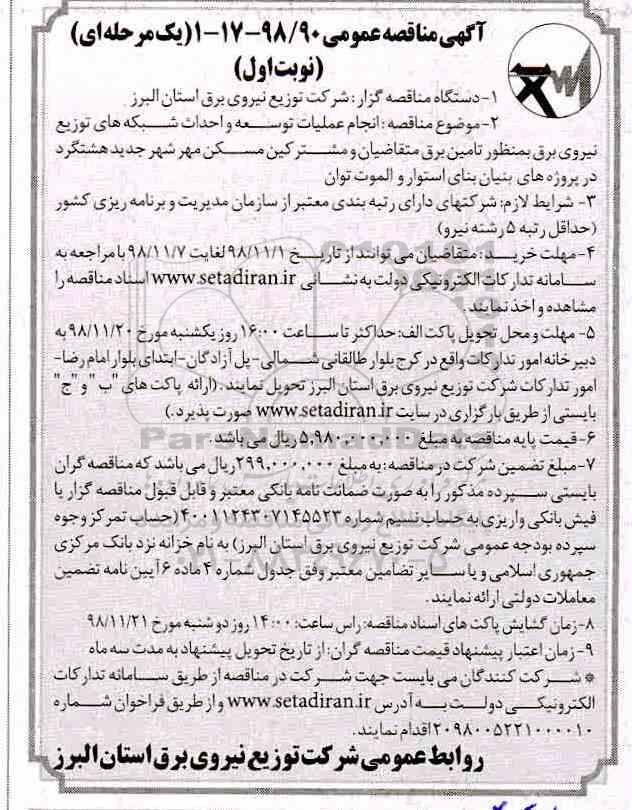 آگهی مناقصه عمومی ۹۸/۹۰-۱۷-۱(یک مرحله ای)
(نوبت اول)
۱- دستگاه مناقصه گزار: شرکت توزیع نیروی برق استان البرز
۲- موضوع مناقصه: انجام عملیات توسعه و احداث شبکه های توزیع
نیروی برق بمنظور تامین برق متقاضیان و مشترکین مسکن مهر شهر جدید هشتگرد
در پروژه های بنیان بنای استوار و الموت توان
۳- شرایط لازم: شرکتهای دارای رتبه بندی معتبر از سازمان مدیریت و برنامه ریزی کشور
(حداقل رتبه ۵ رشته نیرو)
۴- مهلت خرید: متقاضیان می توانند از تاریخ ۹۸/۱۱/۱ لغایت ۹۸/۱۱/۷ با مراجعه به
سامانه تدارکات الکترونیکی دولت به نشانی www.setadiran.ir اسناد مناقصه را
مشاهده و اخذ نمایند.
۵- مهلت و محل تحویل پاکت الف: حداکثر تا ساعت ۱۶:۰۰ روز یکشنبه مورخ ۹۸/۱۱/۲۰ به
دبیرخانه امور تدارکات واقع در کرج بلوار طالقانی شمالی-پل آزادگان-ابتدای بلوار امام رضا-
امور تدارکات شرکت توزیع نیروی برق استان البرز تحویل نمایند. (ارائه پاکت های "ب" و "ج"
بایستی از طریق بارگزاری در سایت www.setadiran.ir صورت پذیرد.)
۶- قیمت پایه مناقصه به مبلغ ۵,۹۸۰,۰۰۰,۰۰۰ ریال می باشد.
۷- مبلغ تضمین شرکت در مناقصه: به مبلغ ۲۹۹,۰۰۰,۰۰۰ ریال می باشد که مناقصه گران
بایستی سپرده مذکور را به صورت ضمانت نامه بانکی معتبر و قابل قبول مناقصه گزار یا
فیش بانکی واریزی به حساب نسیم شماره ۴۰۰۱۱۲۴۳۰۷۱۴۵۵۲۳ (حساب تمرکز وجوه
سپرده بودجه عمومی شرکت توزیع نیروی برق استان البرز) به نام خزانه نزد بانک مرکزی
جمهوری اسلامی و یا سایر تضامین معتبر وفق جدول شماره ۴ ماده ۶ آیین نامه تضمین
معاملات دولتی ارائه نمایند.
۸- زمان گشایش پاکت های اسناد مناقصه: راس ساعت: ۱۴:۰۰ روز دوشنبه مورخ ۹۸/۱۱/۲۱
۹- زمان اعتبار پیشنهاد قیمت مناقصه گران: از تاریخ تحویل پیشنهاد به مدت سه ماه
* شرکت کنندگان می بایست جهت شرکت در مناقصه از طریق سامانه تدارکات
الکترونیکی دولت به آدرس www.setadiran.ir و از طریق فراخوان شماره
۲۰۹۸۰۰۵۲۲۱۰۰۰۰۱۰ اقدام نمایند.
روابط عمومی شرکت توزیع نیروی برق استان البرز